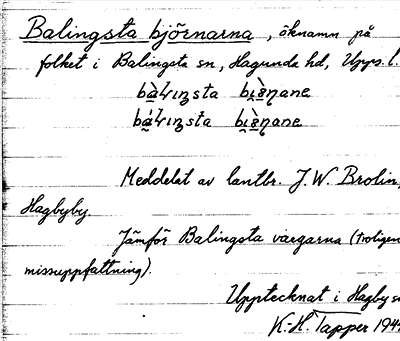 Balingsta björnarna, öknamn på
folket i Balingsta sn, Hagunda hd, Upps. l.
Meddelat av lantbr. J. W. Brolin,
Hagbyby.
Jämför Balingsta vargarna (troligen
missuppfattning).
Upptecknat i Hagby sn
K.-H. Tapper 194